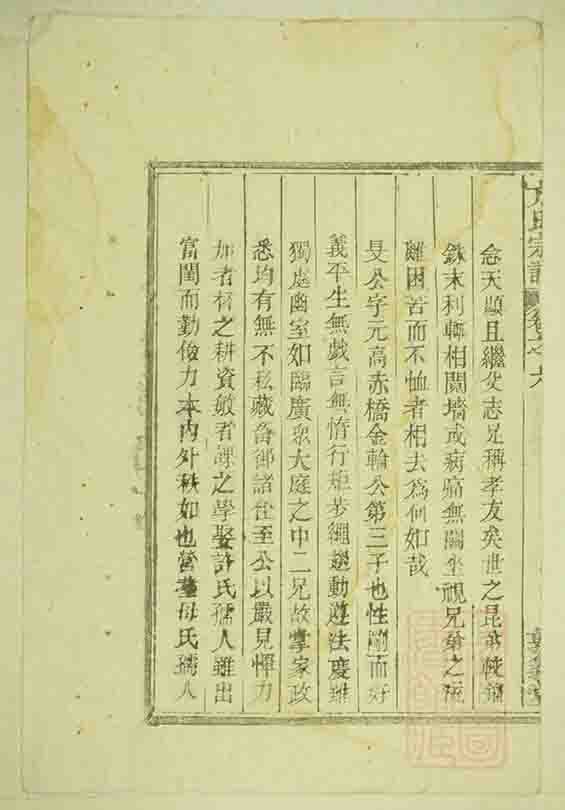 氏宗譜 卷之六
念天顯且繼父志兄稱孝友矣世之昆弟
錐末利輒相鬩墻或病痛無關坐視兄弟之
難困苦而不恤者相去為何如哉
旻公字元高赤橋金輪公第三子也性剛而好
義平生無戯言無惰行矩步繩趨動遵法度雖
獨處幽室如臨廣衆大庭之中二兄故掌家政
悉均有無不私藏畜御諸侄至公以嚴見憚力
者材之耕資敏者課之學娶許氏孺人雖出
富閨而勤儉力本內外秩如也營塟母氏孺人